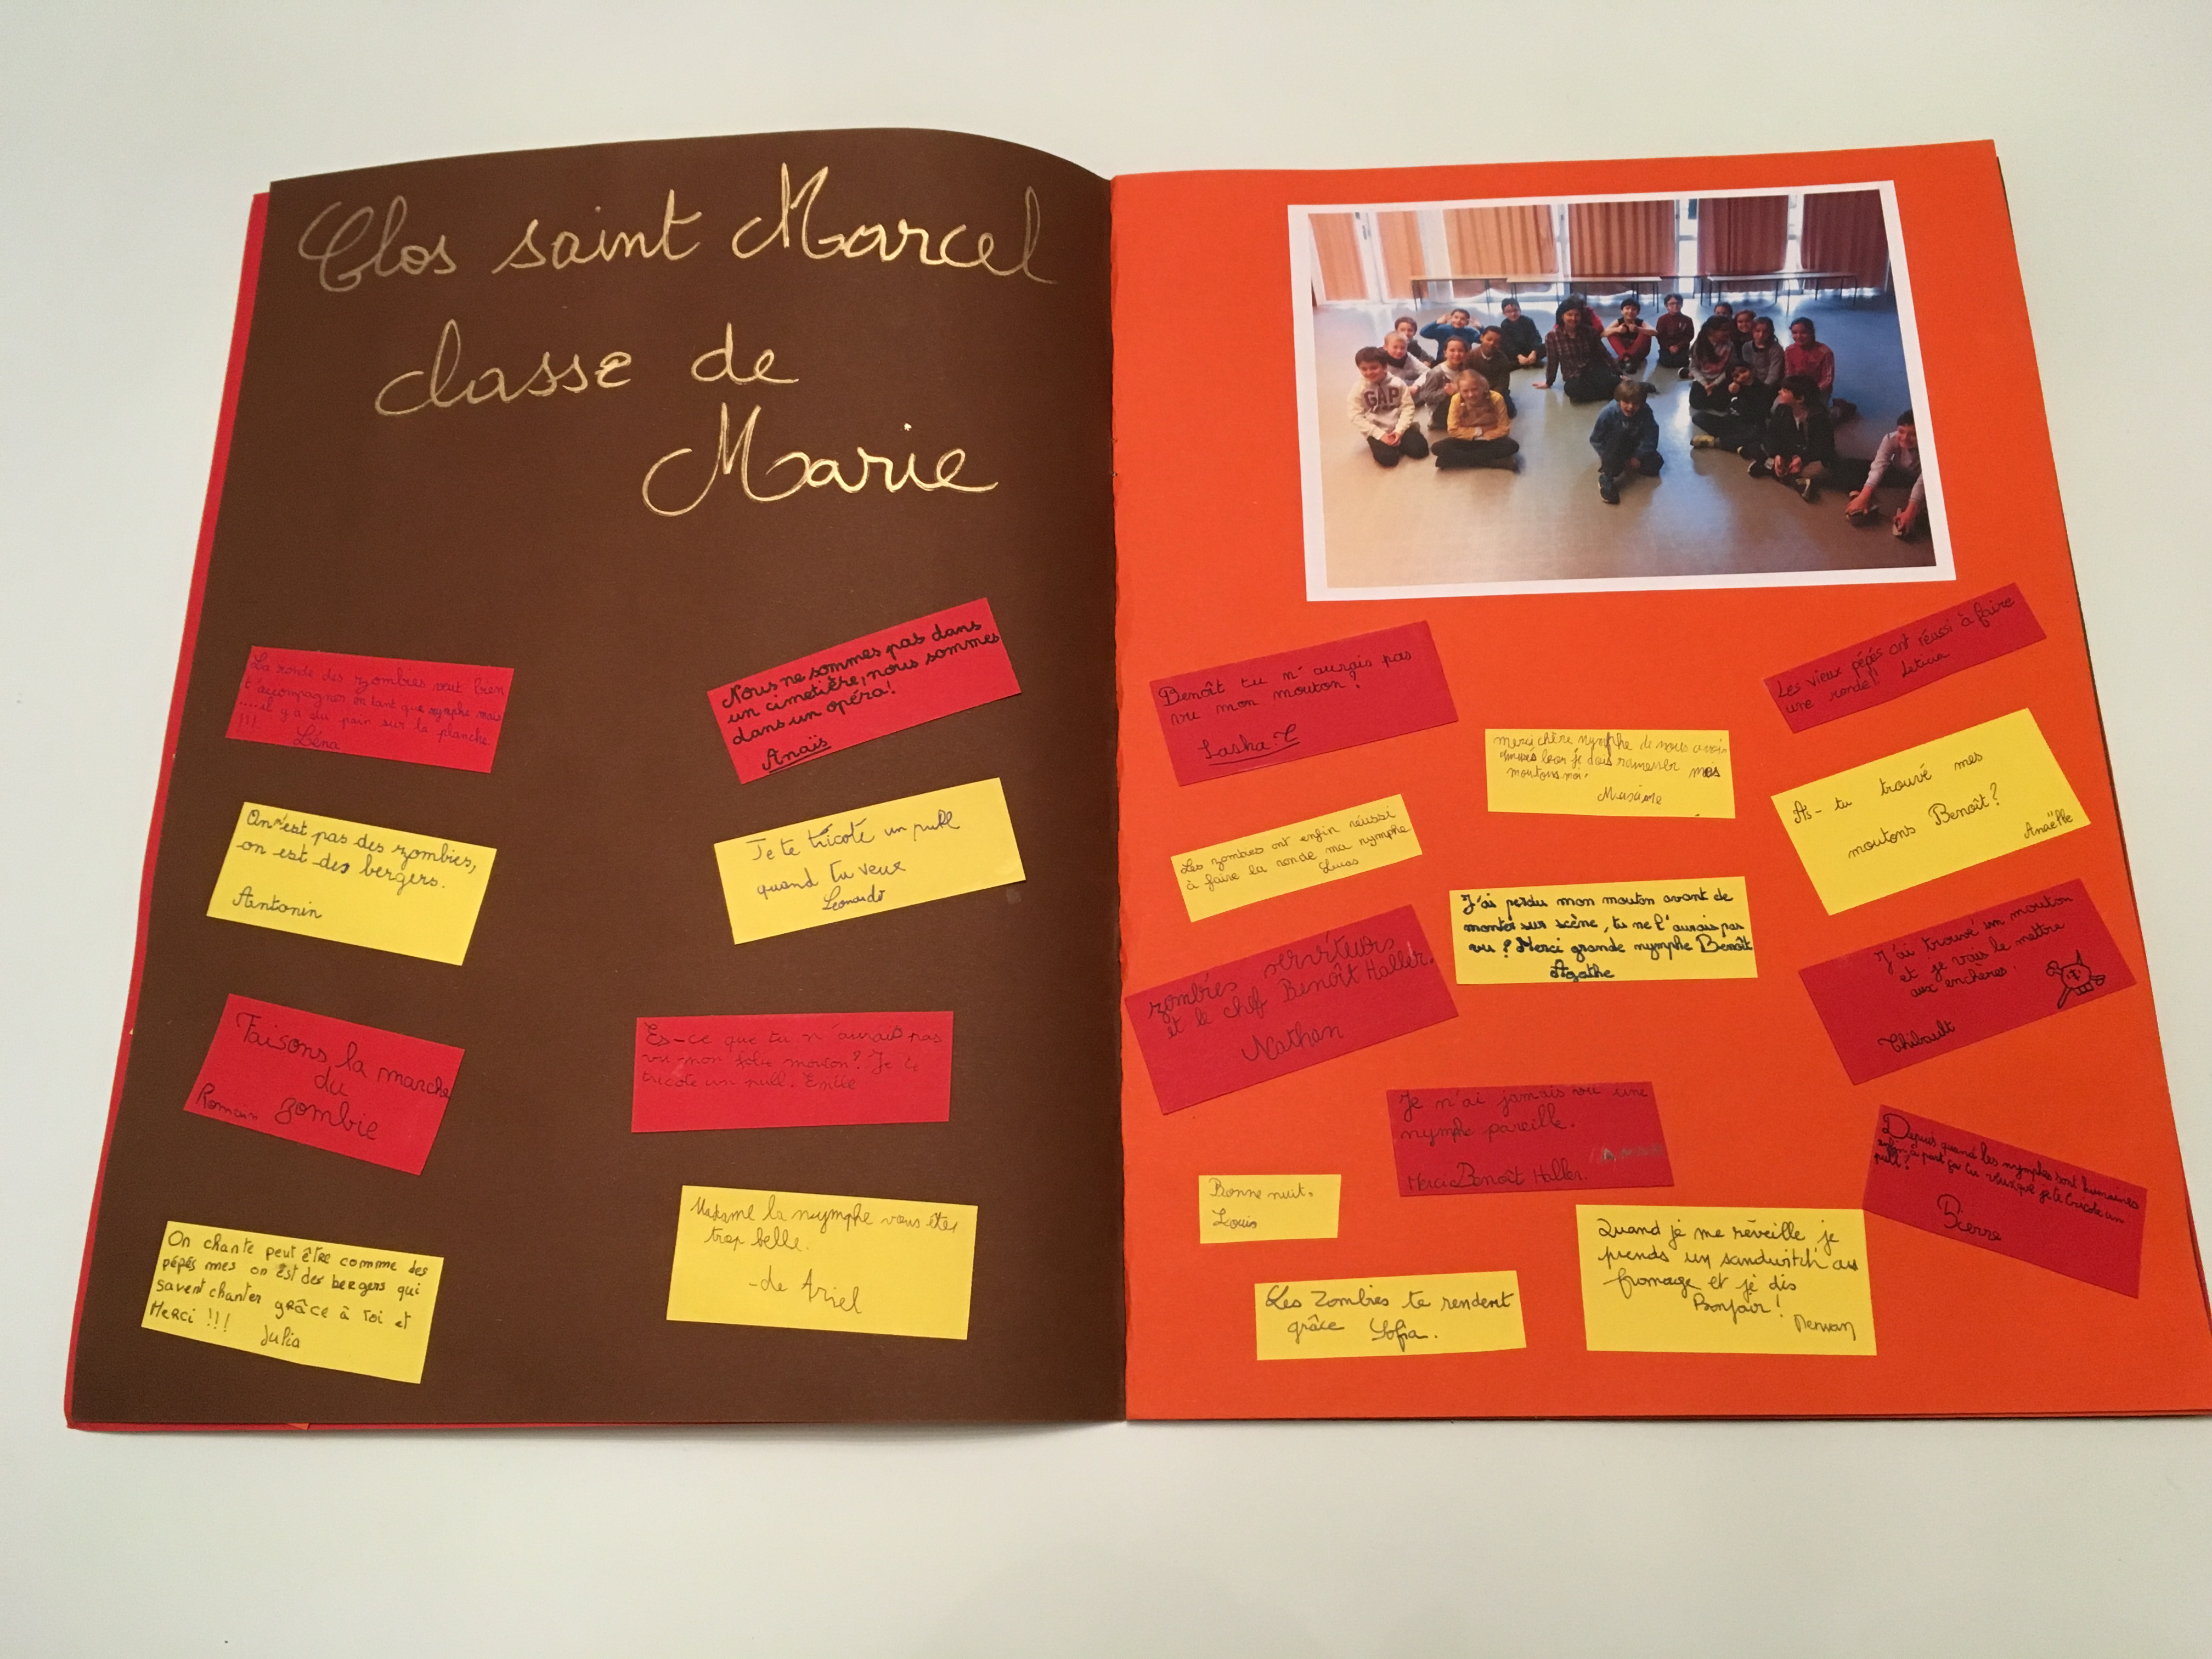 Clos saint Marcel
classe de
Marie
La ronde des zombies veut bien
t'accompagner en tant que nymphe mais
....il y a du pain sur la planche
!!!
Léna
Nous ne sommes pas dans
un cimetière, nous sommes
dans un opéra!
Anaïs
On n'est pas des zombies,
on est des bergers.
Antonin
Je te tricoté un pull
quand tu veux
Leonardo
Faisons la marche
du
zombie
Romain
Es-ce que tu n'aurais pas
vu mon jolie mouton? Je te
tricote un pull.
On chante peut être comme des
pépés mes on est des bergers qui
savent chanter grâce à toi et
Merci !!!
Julia
Madame la nymphe vous êtes
trop belle.
-de Ariel
GAP
Benoît tu n'aurais pas
vu mon mouton?
Sasha.C
Les vieux pépés ont réussi à faire
une ronde! Leticia
merci chère nymphe de nous avoir
je dois ramener mes
moutons
Maxime
As-tu trouvé mes
moutons Benoît?
Anaëlle
Les zombies ont enfin réussi
à faire la ronde ma nymphe
Lucas
J'ai perdu mon mouton avant de
monter sur scène, tu ne l'aurais pas
vu? Merci grande nymphe Benoît
Agathe
zombies serviteurs
et le chef Benoît Haller.
Nathan
J'ai trouvé un mouton
et je vais le mettre
aux enchères.
Thibault
Je n'ai jamais vu une
nymphe pareille.
Merci Benoît Haller.
Depuis quand les nymphes sont humaines
enfin à part ça tu veux que je te tricote un
pull?
Pierre
Bonne nuit.
Louis
Les Zombies te rendent
grâce Sofia.
Quand je me réveille je
prends un sandwitch au
fromage et je dis
Bonjoir!
Merwan